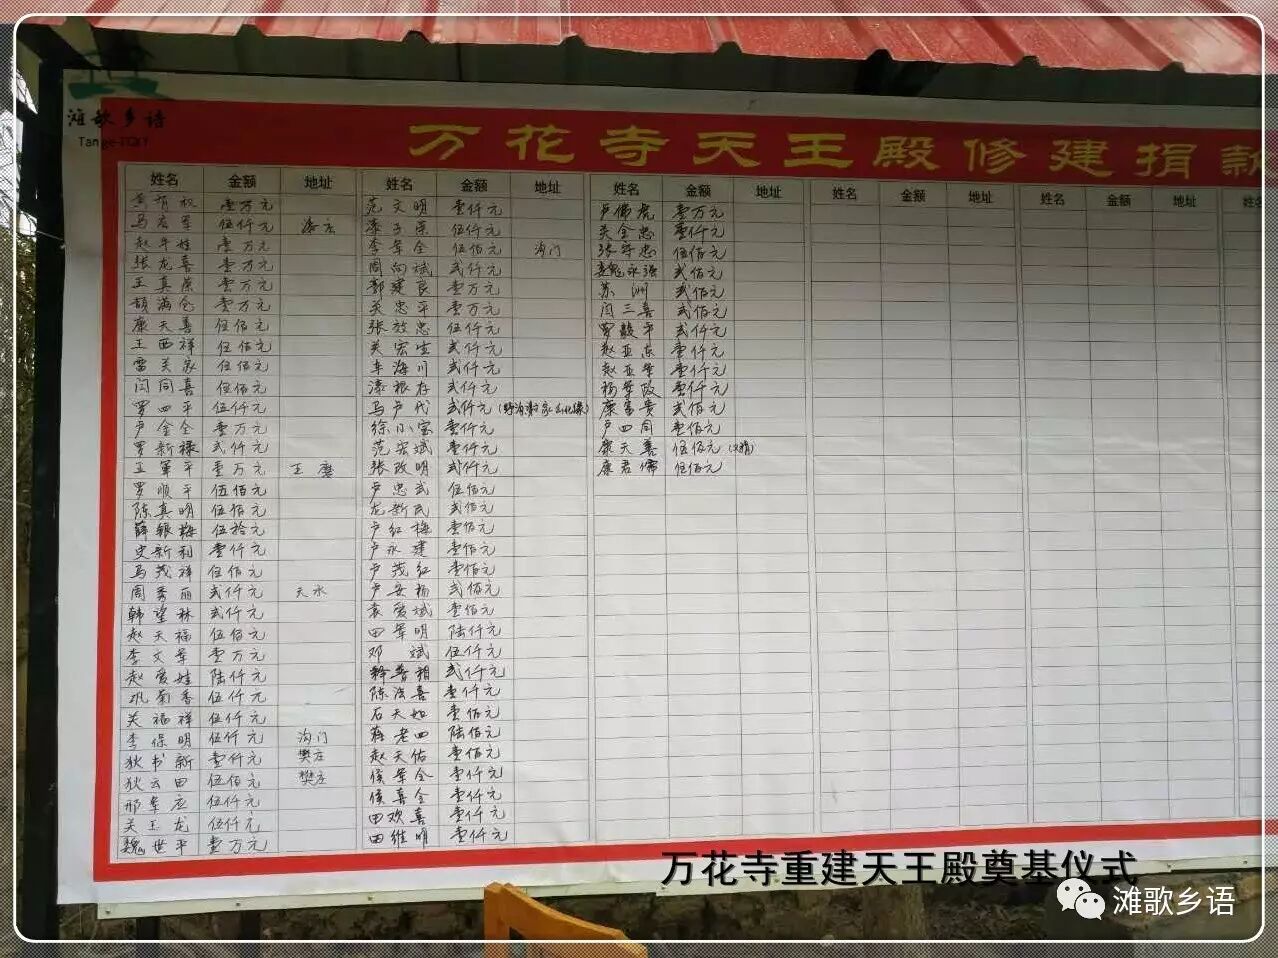 滩歌乡语
Tange-TCXY
万花寺天王殿修建捐款
姓名 金额 地址
壹万元
马宏军 伍仟元 漆庄
赵平娃 壹万元
张龙喜 壹万元
王真荣 壹万元
胡满仓 壹万元
康天喜 伍佰元
王西祥 伍佰元
雷关家 伍佰元
闫同喜 伍佰元
罗四平 伍仟元
卢金全 壹万元
罗新禄 贰仟元
王军平 壹万元 王磨
罗顺平 伍佰元
陈真明 伍佰元
薛银梅 伍拾元
史新利 壹仟元
马茂祥 伍佰元
周秀丽 贰仟元 天水
韩望林 贰仟元
赵天福 伍佰元
李文军 壹万元
赵爱娃 陆仟元
巩菊香 伍仟元
关福祥 伍仟元
李保明 伍仟元 沟门
狄书新 壹仟元 樊庄
狄云田 伍佰元 樊庄
邢军应 伍仟元
关玉龙 伍仟元
魏世平 壹万元
姓名 金额 地址
范文明 壹仟元
漆子荣 伍仟元
李军全 伍佰元 沟门
周向斌 贰仟元
郭建良 壹万元
关忠平 壹万元
张放忠 伍仟元
关宏生 贰仟元
车海川 贰仟元
漆根存 贰仟元
马卢代 贰仟元
徐小宝 壹仟元
范宏斌 壹仟元
张改明 贰仟元
卢忠武 伍佰元
龙新民 贰佰元
卢红梅 壹佰元
卢永建 壹佰元
卢茂红 壹佰元
卢安杨 贰佰元
袁爱斌 壹佰元
田军明 陆仟元
邓斌 伍仟元
释普相 贰仟元
陈法喜 壹仟元
石天如 壹佰元
蒋老四 陆佰元
赵天佑 壹佰元
侯军全 壹仟元
侯喜全 壹仟元
田欢喜 壹仟元
田维明 壹仟元
姓名 金额 地址
卢佛虎 壹万元
关全忠 壹仟元
张守忠 伍佰元
魏永强 贰佰元
苏洲 贰佰元
闫三喜 贰佰元
罗毅平 贰仟元
赵亚东 壹仟元
赵亚军 壹仟元
杨军政 壹仟元
康富贵 贰佰元
卢四同 壹佰元
康天喜 伍佰元
康君儒 伍佰元
姓名 金额 地址
姓名 金额 地址
万花寺重建天王殿奠基仪式
滩歌乡语